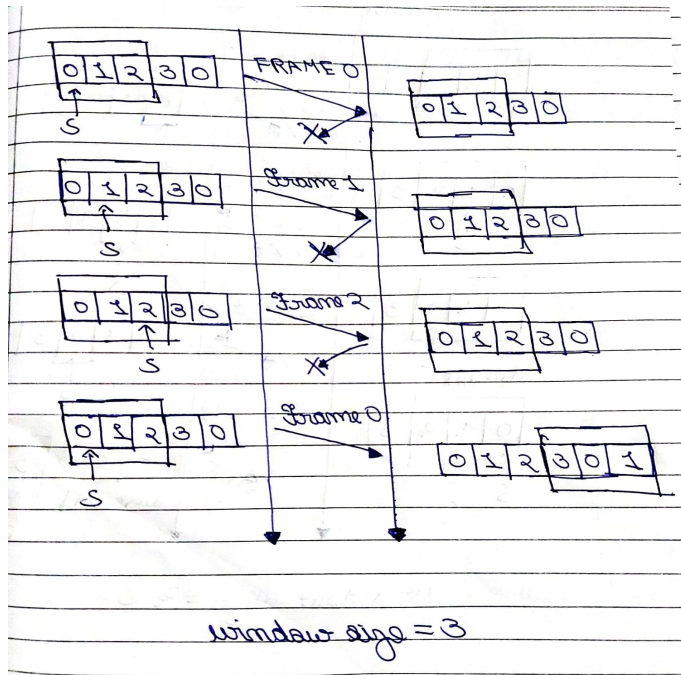 0 1 2 3 0
FRAME 0
0 1 2 3 0
S
X
0 1 2 3 0
Frame 1
0 1 2 3 0
S
X
0 1 2 3 0
Frame 2
0 1 2 3 0
S
X
0 1 2 3 0
Frame 0
0 1 2 3 0 1
S
window size = 3